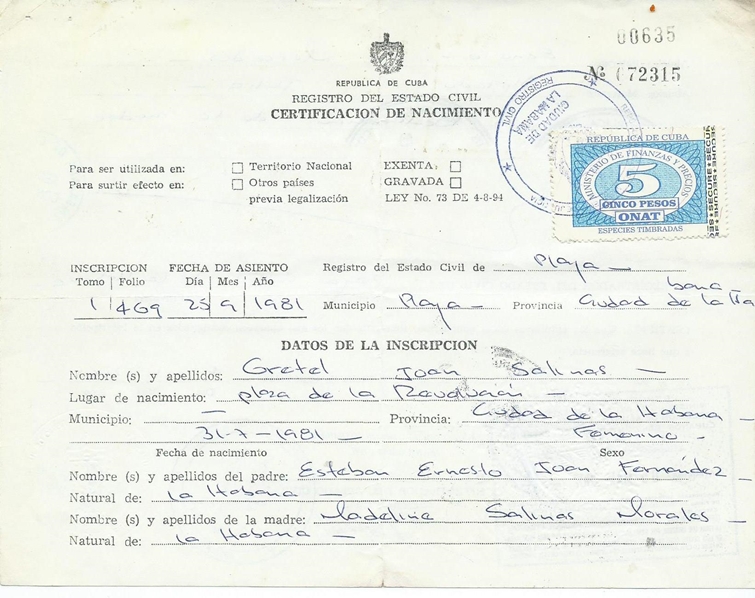 00635
Nº 72315
REPUBLICA DE CUBA
REGISTRO DEL ESTADO CIVIL
CERTIFICACION DE NACIMIENTO
REGISTRO CIVIL
CIUDAD DE
LA HABANA
REPÚBLICA DE CUBA
MINISTERIO DE FINANZAS Y PRECIOS
5
CINCO PESOS
ONAT
ESPECIES TIMBRADAS
Para ser utilizada en: Territorio Nacional EXENTA:
Para surtir efecto en: Otros países GRAVADA
previa legalización LEY No. 73 DE 4-8-94
INSCRIPCION FECHA DE ASIENTO Registro del Estado Civil de Playa
Tomo Folio Día Mes Año
1 469 25 9 1981 Municipio Playa Provincia Ciudad de la Habana
DATOS DE LA INSCRIPCION
Nombre (s) y apellidos: Gretel Joan Salinas
Lugar de nacimiento: plaza de la Revolución
Municipio: — Provincia: Ciudad de la Habana
31-7-1981 Femenino
Fecha de nacimiento Sexo
Nombre (s) y apellidos del padre: Esteban Ernesto Joan Fernández
Natural de: La Habana
Nombre (s) y apellidos de la madre: Madeline Salinas Morales
Natural de: La Habana